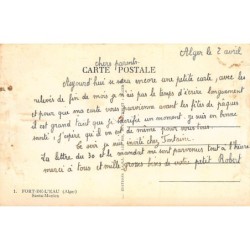 Alger le 2 avril
chers parents
CARTE POSTALE
Aujourd'hui je serai encore une petite carte, avec les
relevés de fin de mois je n'ai pas le temps d'écrire longuement
et pour que ma carte vous parvienne avant les fêtes de pâques
il est grand tant que je clarifie un moment, je suis en bonne
santé, j'espère qu'il en est de même pour vous tous.
Ce soir je suis invité chez Fontaine.
La lettre du 30 et le mandat me sont parvenus tout à l'heure
merci à tous et mille grosses bises de votre petit Robert
1. FORT-DE-L'EAU (Alger)